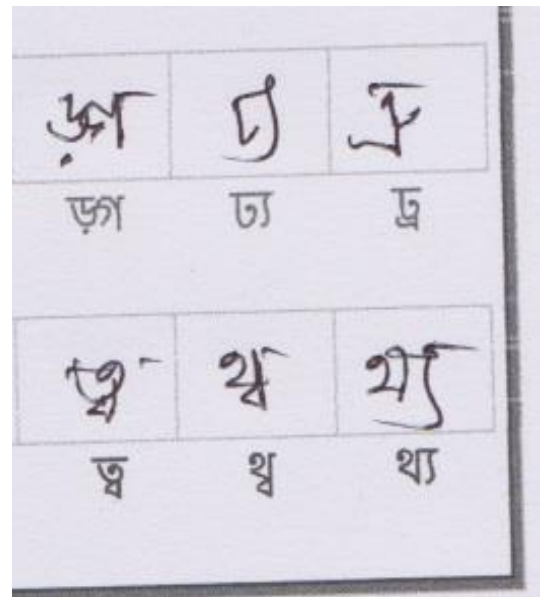 ড়্গ ঢ্য ঢ্র
ড়্গ ঢ্য ঢ্র
ত্ব থ্ব থ্য
ত্ব থ্ব থ্য